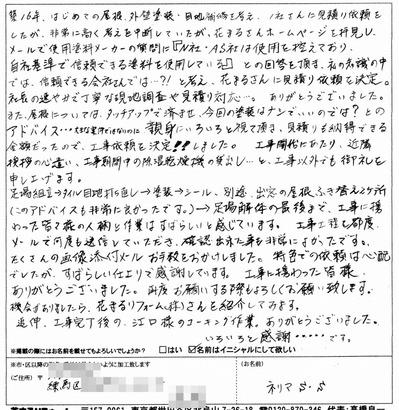 築16年、はじめての屋根、外壁塗装・目地補修を考え、1社さんに見積り依頼を
したが、非常に高く考えを中断していたが、花まるさんホームページを拝見し、
メールで使用塗料メーカーの質問に『N社・AS社は使用を控えており、
自社基準で信頼できる塗料を使用している』との回答を頂き、私の知識の中
では、信頼できる会社さんでは…?!と考え、花まるさんに見積り依頼を決定。
社長の速やかで丁寧な現地調査や見積り対応…。ありがとうございました。
また、屋根については、タッチアップで済ませ、今回の塗装はナシでいいのでは?との
アドバイス… 親身にいろいろと視て頂き、見積りも納得できる
金額だったので、工事依頼を決定!!しました。工事開始にあたり、近隣
挨拶の心遣い、工事期間中の除湿乾燥機の貸出し…と、工事以外でも御礼を
申し上げます。
足場組立→タイル目地打ち直し→塗装→シール、別途、出窓の屋根ふき替え2ヶ所
(このアドバイスも非常に良かったです。)→足場解体の最後まで、工事に携
わった皆さ様の人柄と作業はすばらしいと感じています。工事工程も都度、
メールで何度も送信していただき、確認出来た事も非常によかったです。
たくさんの画像添付メールお手数をおかけしました。特色での依頼は心配
でしたが、すばらしい仕上りで感謝しています。工事に携わった皆様、
ありがとうございました。再度お願いする際もよろしくお願い致します。
機会がありましたら、花まるリフォーム(株)さんを紹介してみます。
追伸、工事完了後の、江口様のコーキング作業。ありがとうございました。
いろいろと感謝・・・・・です。
※掲載の際にはお名前を載せてもよろしいでしょうか? □はい ☑名前はイニシャルにして欲しい
※市・区以降の
ように加工致します
(ご住所) 〒
練馬区
(お名前)
ネリマ S・S